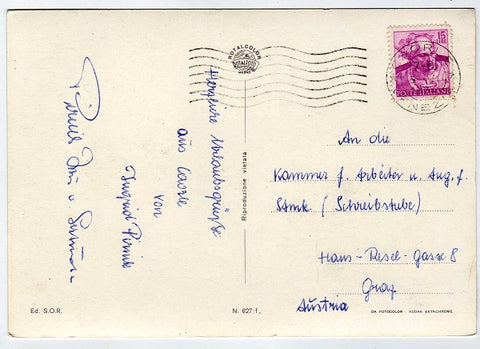 Herzliche Urlaubsgrüße
aus Caorle
von
Ingrid Pirnik
ROTALCOLOR
15
POSTE ITALIANE
Riproduzione vietata
An die
Kammer f. Arbeiter u. Ang. f.
Stmk. (Schreibstube)
Hans-Resel-Gasse 8
Graz
Austria
Ed. S.O.R.
N. 627/f.
DA FOTOCOLOR - KODAK EKTACHROME